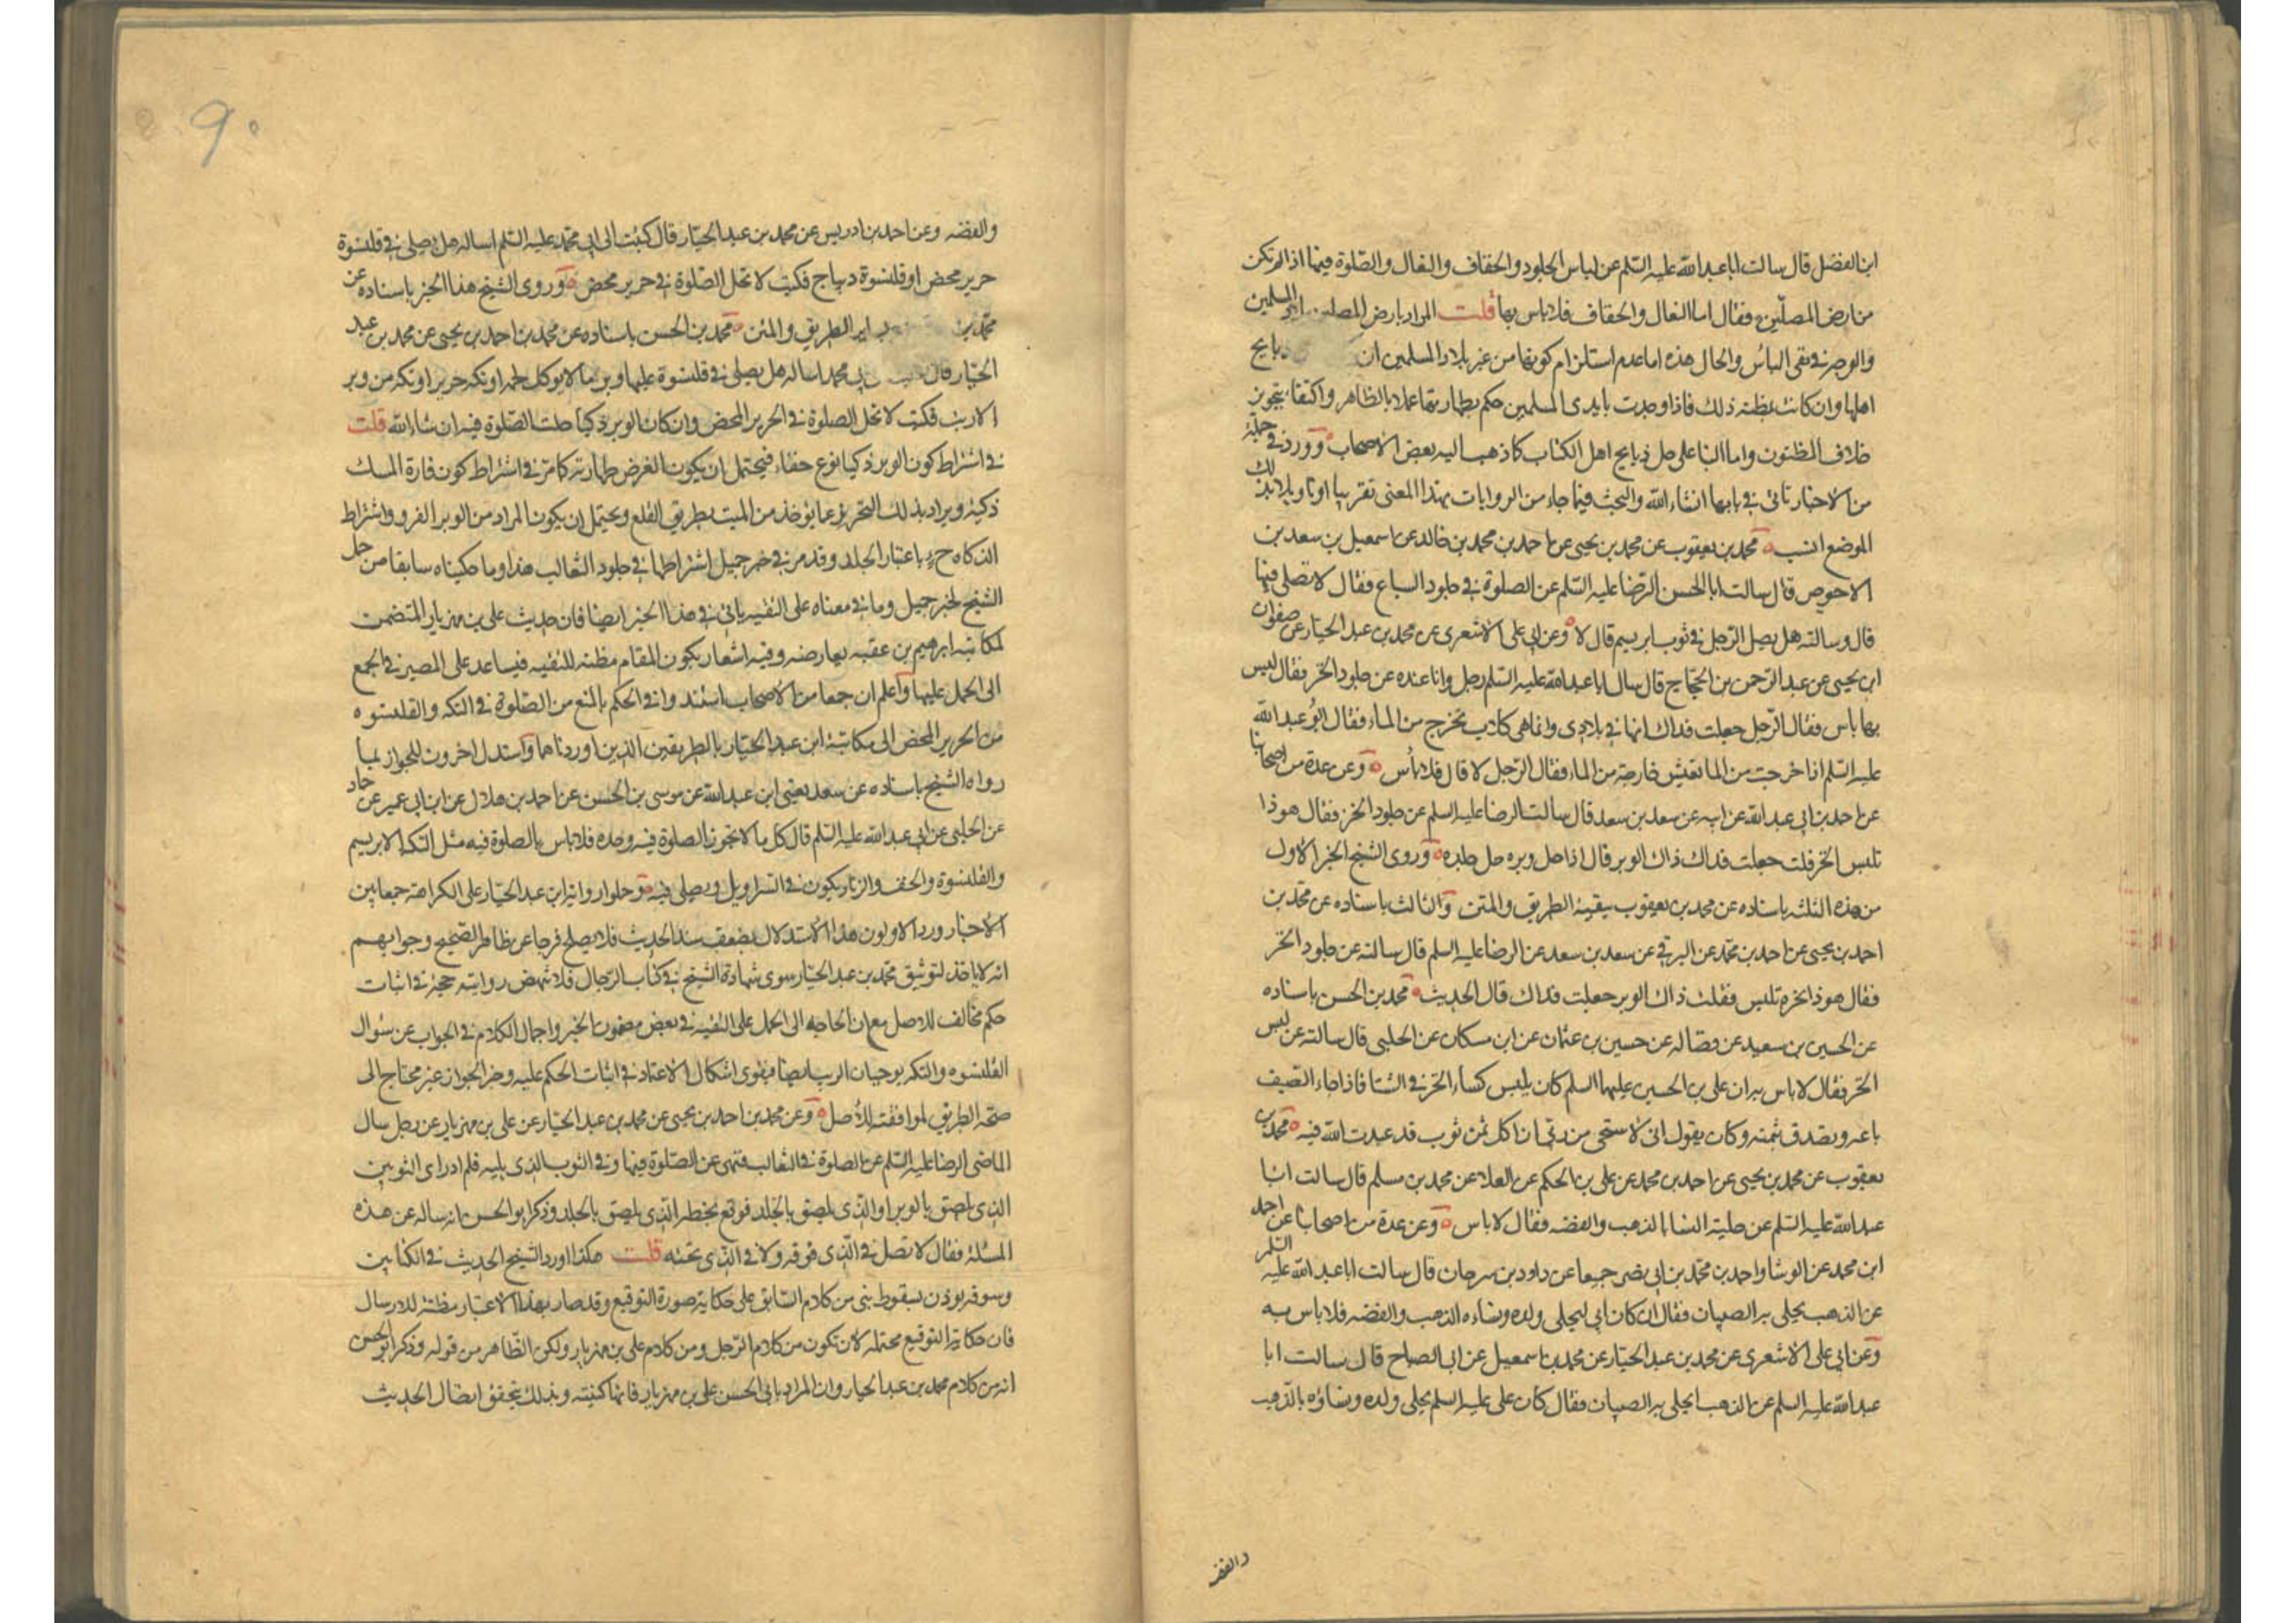 ابن الفضل قال سالت ابا عبد الله عليه السّلم عن لباس الجلود والخفاف والنعال والصّلوة فيها اذا لم تكن
من ارض المصلّين فقال اما النعال والخفاف فلا باس بها قلت المراد بارض المصلين المسلمين
والوجه في نفي الباس والحال هذه اما عدم استلزام كونها من غير بلاد المسلمين ان ذبايح
اهلها وان كانت مظنه ذلك فاذا وجدت بايدى المسلمين حكم بطهارتها عملا بالظاهر واكتفا بتجويز
خلاف المظنون واما البنا على حل ذبايح اهل الكتاب كما ذهب اليه بعض الاصحاب وورد في جملة
من الاخبار تاتي في بابها انشاء الله والبحث فيما جاء من الروايات بهذا المعنى تقريبا او تاويلا بذلك
الموضع انسب محمد بن يعقوب عن محمد بن يحيى عن احمد بن محمد بن خالد عن اسمعيل بن سعد بن
الاحوص قال سالت ابا الحسن الرّضا عليه السّلم عن الصلوة في جلود السباع فقال لا تصلى فيها
قال وسالته هل يصل الرّجل في ثوب ابريسم قال لا وعن ابي على الاشعرى عن محمد بن عبد الجبار عن صفوان
ابن يحيى عن عبد الرّحمن بن الحجّاج قال سال ابا عبد الله عليه السّلم رجل وانا عنده عن جلود الخز فقال ليس
بها باس فقال الرّجل جعلت فداك انها في بلادى وانما هى كلاب تخرج من الماء فقال ابو عبد الله
عليه السّلم اذا خرجت من الما تعيش خارجة من الماء فقال الرّجل لا قال فلا باس وعن عدة من اصحابنا
عن احمد بن ابي عبد الله عن ابيه عن سعد بن سعد قال سالت الرضا عليه السلم عن جلود الخز فقال هوذا
نلبس الخز قلت جعلت فداك ذاك الوبر قال اذا حل وبره حل جلده وروى الشيخ الخبر الاول
من هذه الثلثه باسناده عن محمد بن يعقوب ببقية الطريق والمتن والثالث باسناده عن محمّد بن
احمد بن يحيى عن احمد بن محمّد عن البرقى عن سعد بن سعد عن الرضا عليه السلم قال سالته عن جلود الخز
فقال هوذا نحن نلبس فقلت ذاك الوبر جعلت فداك قال الحديث محمد بن الحسن باسناده
عن الحسين بن سعيد عن فضاله عن حسين بن عثمان عن ابن مسكان عن الحلبى قال سالته عن لبس
الخز فقال لا باس به ان على بن الحسين عليهما السلم كان يلبس كساء الخز في الشتا فاذا جاء الصّيف
باعه ويصدق بثمنه وكان يقول انى لاستحى من ربي ان اكل ثمن ثوب قد عبدت الله فيه محمّد بن
يعقوب عن محمد بن يحيى عن احمد بن محمد عن على بن الحكم عن العلا عن محمد بن مسلم قال سالت ابا
عبد الله عليه السّلم عن حلية النسا بالذهب والفضه فقال لا باس وعن عدة من اصحابنا عن احمد
ابن محمد عن الوشا واحمد بن محمد بن ابي نصر جميعا عن داود بن سرحان قال سالت ابا عبد الله عليه السّلم
عن الذهب يحلى به الصبيان فقال ان كان ابي ليحلى ولده ونساءه الذهب والفضه فلا باس به
وعن ابي على الاشعرى عن محمد بن عبد الجبّار عن محمد بن اسمعيل عن ابي الصباح قال سالت ابا
عبد الله عليه السلم عن الذهب يحلى به الصبيان فقال كان على عليه السلم يحلى ولده ونساؤه بالذّهب
والفضه
٩٠
والفضه وعن احمد بن ادريس عن محمد بن عبد الجبّار قال كتبت الى ابي محمّد عليه السّلم اساله هل يصلى في قلنسوة
حرير محض او قلنسوة ديباج فكتب لا تحل الصّلوة في حرير محض وروى الشيخ هذا الخبر باسناده عن
محمّد بن الطريق والمتن محمّد بن الحسن باسناده عن محمد بن احمد بن يحيى عن محمد بن عبد
الجبّار قال محمد اساله هل يصلى في قلنسوة عليها وبر ما لا يوكل لحمه او تكه حرير او تكه من وبر
الارنب فكتب لا تحل الصلوة في الحرير المحض وان كان الوبر ذكيا حلت الصّلوة فيه ان شاء الله قلت
في اشتراط كون الوبر ذكيا نوع خفاء فيحتمل ان يكون الغرض طهارته كما مرّ في اشتراط كون فارة المسك
ذكية ويراد بذلك التحرز عما يؤخذ من الميت بطريق القلع ويحتمل ان يكون المراد من الوبر الفرو واشتراط
الذكاه ح باعتبار الجلد وقد مر في خبر جميل اشتراطها في جلود الثعالب هذا وما حكيناه سابقا من حمل
الشيخ لخبر جميل وما في معناه على التقيه ياتي في هذا الخبر ايضا فان حديث على بن مهزيار المتضمن
لمكاتبه ابرهيم بن عقبه يعارضه وفيه اشعار بكون المقام مظنه للتقيه فيساعد على المصير في الجمع
الى الحمل عليها واعلم ان جمعا من الاصحاب استند وا في الحكم بالمنع من الصّلوة في التكه والقلنسوه
من الحرير المحض الى مكاتبة ابن عبد الجبّار بالطريقين الذين اوردناهما واستدل اخرون للجواز بما
رواه الشيخ باسناده عن سعد يعنى ابن عبد الله عن موسى بن الحسن عن احمد بن هلال عن ابن ابي عمير عن حماد
عن الحلبى عن ابي عبد الله عليه السّلم قال كل ما لا تجوز الصلوة فيه وحده فلا باس بالصلوة فيه مثل التكه الابريسم
والقلنسوة والخف والزنار يكون في السراويل ويصلى فيه وحملوا رواية ابن عبد الجبّار على الكراهة جمعا بين
الاخبار ورد الاولون هذا الاستدلال بضعف سند الحديث فلا يصلح فرجا عن ظاهر الصّحيح وجوابهم
انه لا ماخذ لتوثيق محمّد بن عبد الجبّار سوى شهادة الشيخ في كتاب الرّجال فلا تنهض روايته حجة في اثبات
حكم مخالف للاصل مع ان الحاجه الى الحمل على التقيه في بعض مضمون الخبر واجمال الكلام في الجواب عن سؤال
القلنسوه والتكه يوجبان الريب ايضا فيقوى اشكال الاعتماد في اثبات الحكم عليه وخبر الجواز غير محتاج الى
صحّه الطريق لموافقته للاصل وعن محمد بن احمد بن يحيى عن محمد بن عبد الجبّار عن على بن مهزيار عن رجل سال
الماضى الرضا عليه السّلم عن الصلوة في الثعالب فنهى عن الصّلوة فيها وفي الثوب الذى يليه فلم ادر اى الثوبين
الذى يلصق بالوبر او الذى يلصق بالجلد فوقع بخطه الذى يلصق بالجلد وذكر ابو الحسن انه ساله عن هذه
المسئلة فقال لا تصل في الذى فوقه ولا في الذى تحته قلت هكذا اورد الشيخ الحديث في الكتابين
وسوقه يوذن بسقوط شئ من كلام السّابق على حكاية صورة التوقيع وقد صار بهذا الاعتبار مظنّة للارسال
فان حكاية التوقيع محتمله لان تكون من كلام الرّجل ومن كلام على بن مهزيار ولكن الظّاهر من قوله وذكر ابو الحسن
انه من كلام محمد بن عبد الجبار وان المراد بابي الحسن على بن مهزيار فانها كنيته وبذلك يتحقق اتصال الحديث